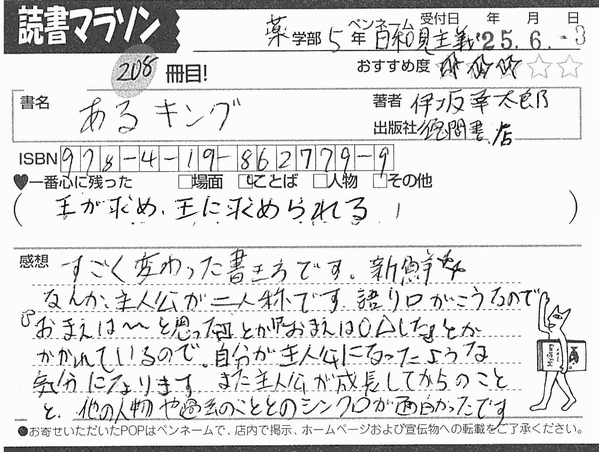 読書マラソン
ペンネーム 受付日 年 月 日
薬学部 5年 日和見主義 '25.6.-3
208冊目!
おすすめ度 ☆☆☆☆☆
書名 あるキング
著者 伊坂幸太郎
出版社 徳間書店
ISBN 978-4-19-862779-9
♥一番心に残った □場面 □ことば □人物 □その他
(王が求め、王に求められる)
感想 すごく変わった書き方です。新鮮な
なんか、主人公が二人称です。語り口がこうなので
"おまえは〜と思った"とか"おまえは〇〇した"とか
かかれているので、自分が主人公になったような
気分になります。また主人公が成長してからのこと
と、他の人物や過去のこととのシンクロが面白かったです
●お寄せいただいたPOPはペンネームで、店内で掲示、ホームページおよび宣伝物への転載をご了承ください。